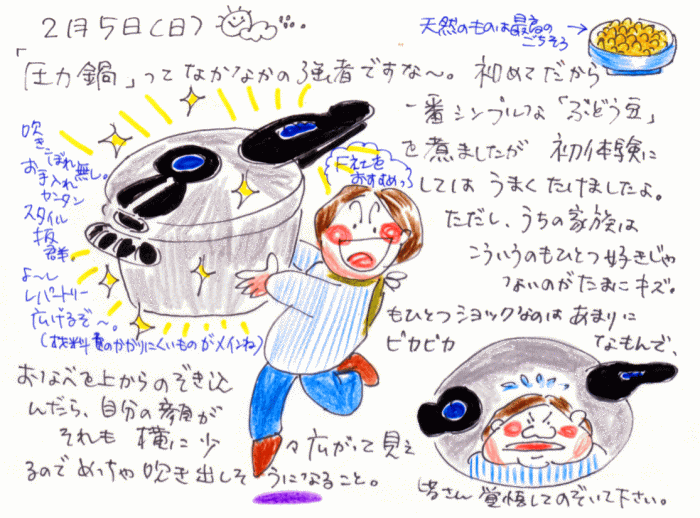 2月5日(日)
天然のものは最高の
ごちそう
「圧力鍋」ってなかなかの強者ですな〜。初めてだから
一番シンプルな「ぶどう豆」
を煮ましたが 初体験に
してはうまくたけましたよ。
ただし、うちの家族は
こういうのもひとつ好きじゃ
ないのがたまにキズ。
もひとつショックなのはあまりに
ピカピカ なもんで、
おなべを上からのぞき込
んだら、自分の顔が
それも 横に少
々広がって見え
るのでめっちゃ吹き出しそうになること。
皆さん覚悟してのぞいて下さい。
吹き
こぼれ無し。
お手入れ
カンタン
スタイル
抜
群。
よ〜し
レパートリー
広げるぞ〜。
(材料費のかかりにくいものがメインね)
おすすめっ